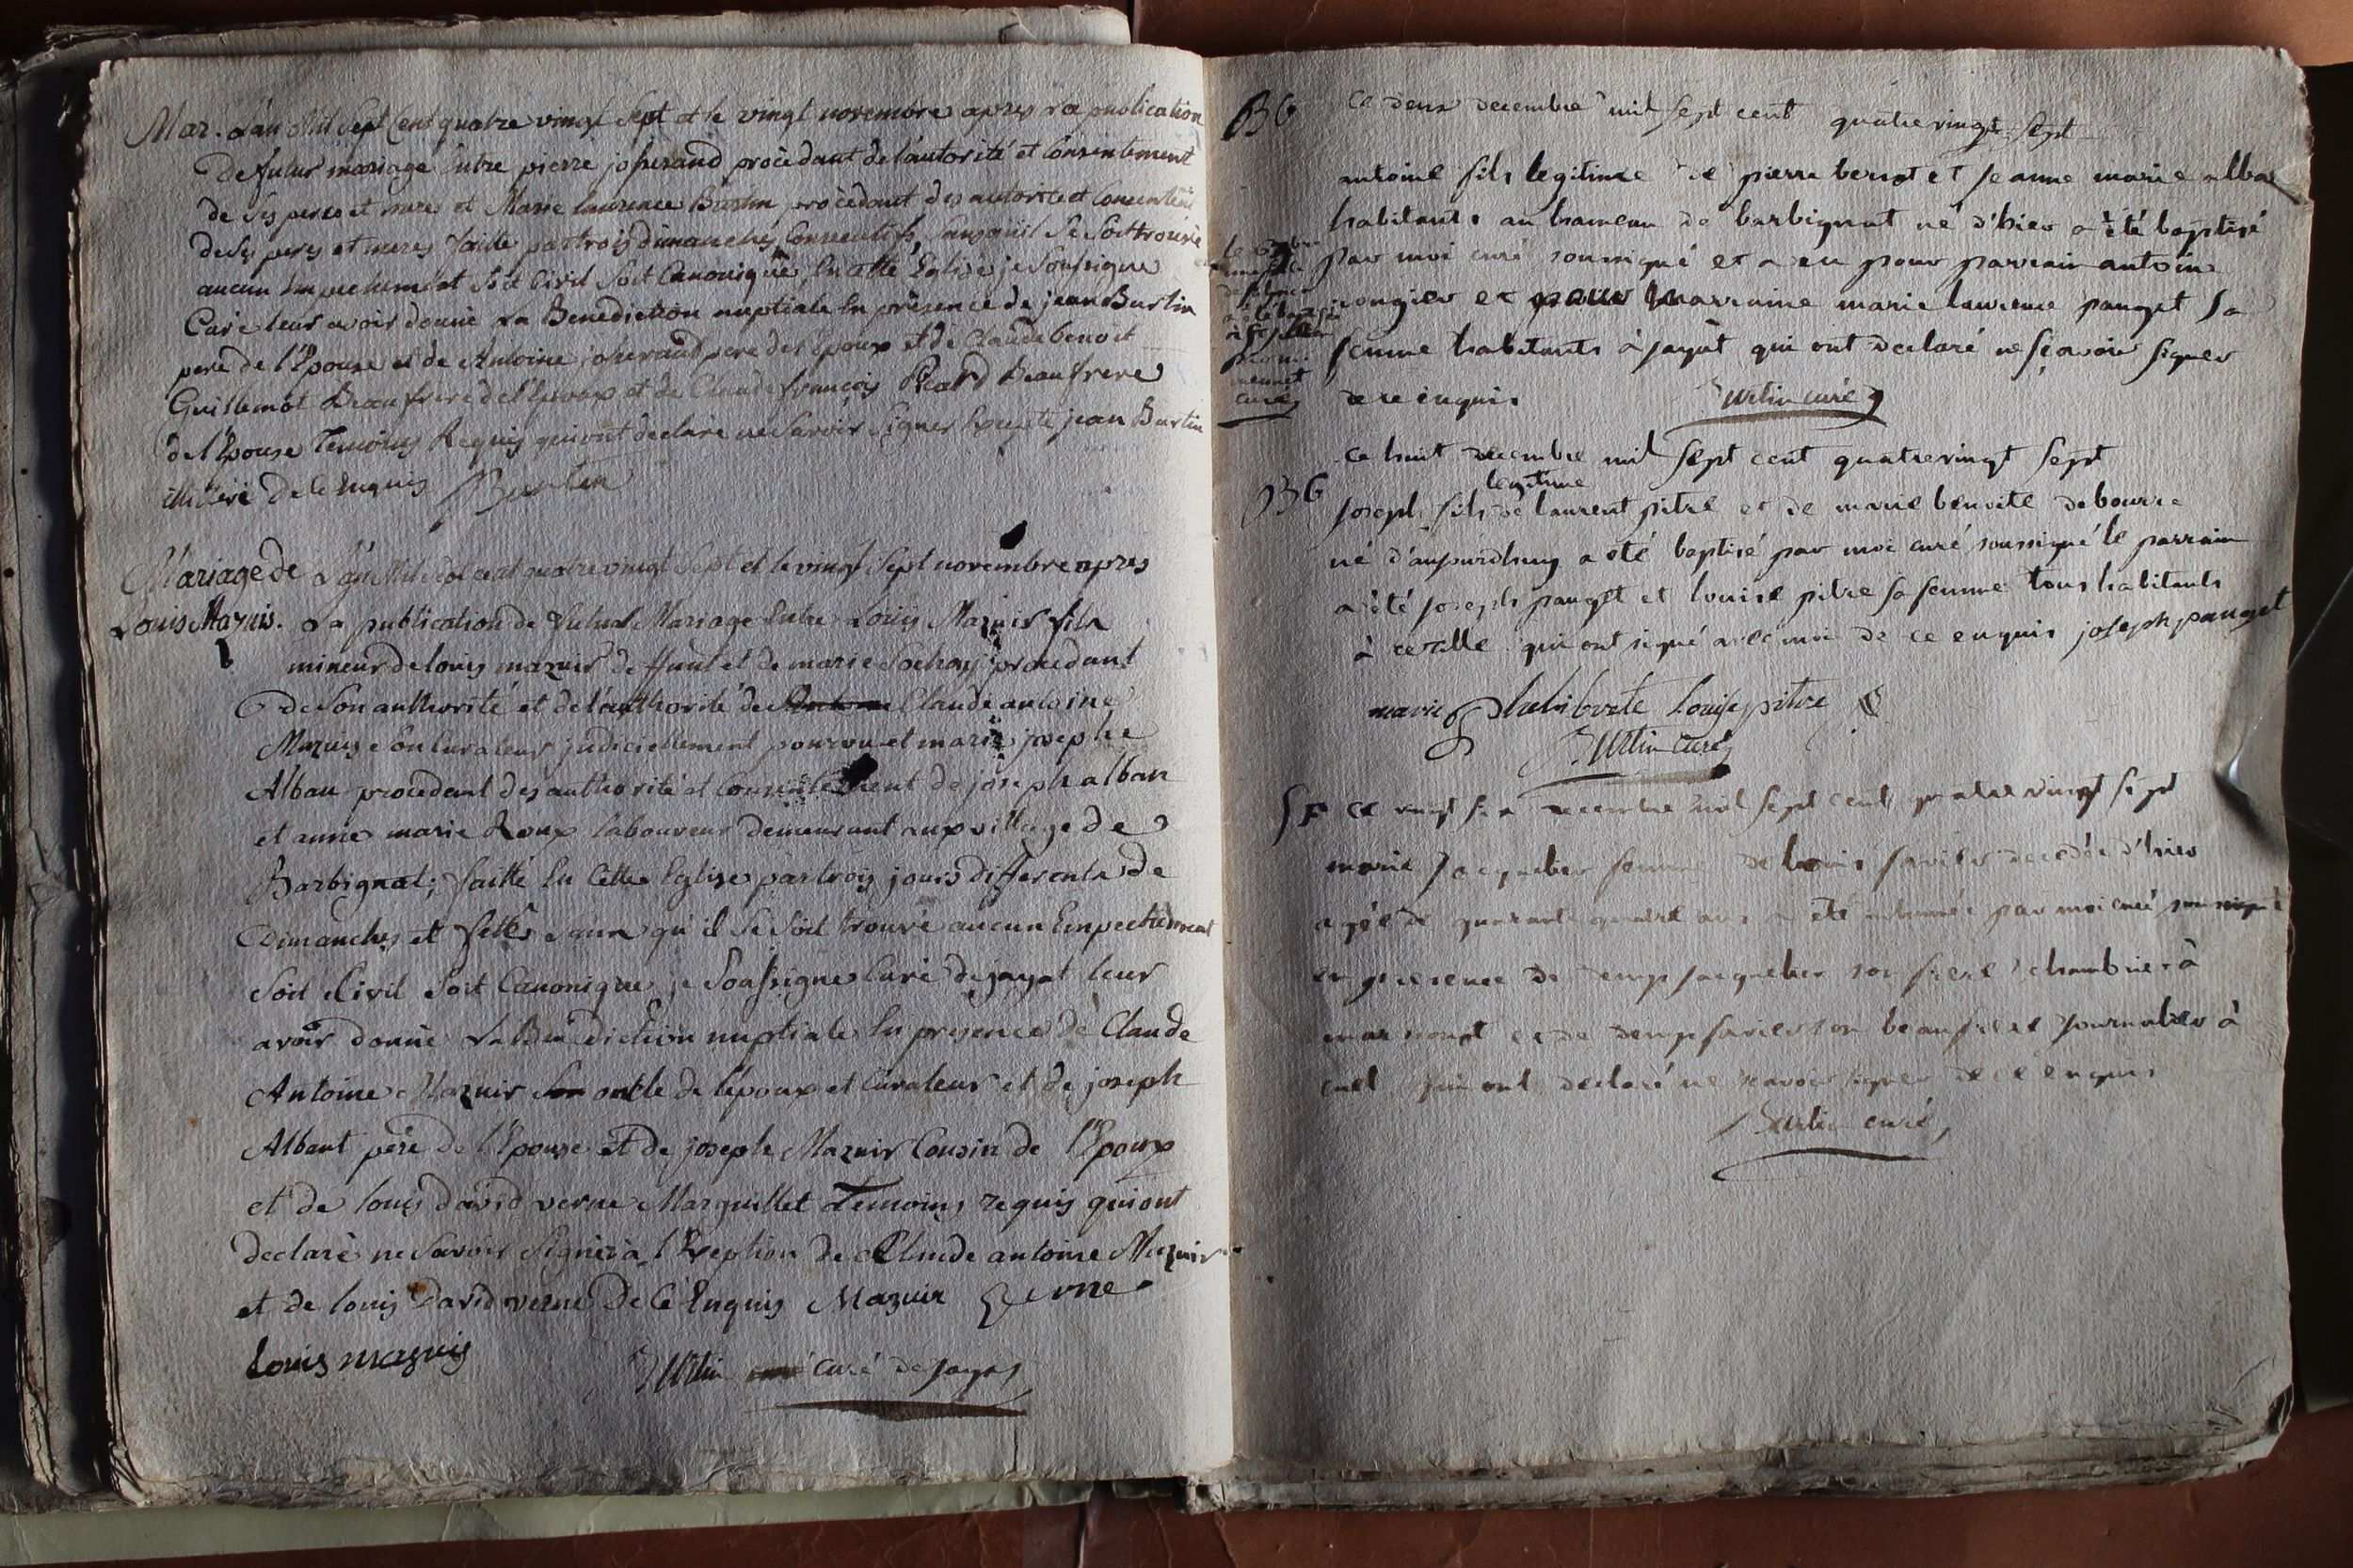 Mar. L'an Mil Sept Cent quatre vingt Sept et le vingt novembre apres la publication
de futur mariage Entre pierre josserand procedant de l'autorité et Consentement
de Ses peres et mere et Marie laurence Burtin procedant des autorité et Consentement
de Ses peres et meres faitte par trois dimanches Consecutifs, Sans qu'il Se Soit trouvé
aucun Empechement Soit Civil Soit Canonique, En cette Eglise je Soussigne
Curé leur avoir donné La Benediction nuptiale En présence de jean Burtin
pere de l'Epouse et de Antoine josserand pere de l'Epoux et de Claude benoit
Guillemot Beaufrere de l'Epoux et de Claude françois Picard Beaufrere
de l'Epouse Temoins Requis qui ont declaré ne Savoir Signer Excepté jean Burtin
de Ce Enquis Burtin
Mariage de L'an Mil Sept cent quatre vingt Sept et le vingt Sept novembre apres
Louis Mazuis. La publication de Futur Mariage Entre Louis Mazuir fils
mineur de louis mazuir deffunt et de marie procedant
de Son authorité et de l'authorité de Claude antoine
Mazuis Son Curateur judiciellement pourvu et marie josephe
Alban procedant des authorité et Consentement de joseph alban
et anne marie Roux laboureur demeurant aux village de
Barbignat; faitte En Cette Eglise par trois jours differents de
Dimanches et fettes Sans qu'il Se Soit trouvé aucun Empechement
Soit Civil Soit Canonique je Soussigne Curé de jayat leur
avoir donné La Benediction nuptiale En presence de Claude
Antoine Mazuir oncle de l'époux et Curateur et de joseph
Albant père de l'Epouse et de joseph Mazuir Cousin de l'Epoux
et de louis david verne Marguillet Temoins requis qui ont
declaré ne Savoir Signer à l'Exeption de Claude antoine Mazuir
et de louis David verne De Cé Enquis Mazuir verne
Louis mazuis
Burtin curé de jayat
BG ce deux decembre mil sept cent quatrevingt sept
antoine fils legitime de pierre beriot et jeanne marie alban
habitants au hameau de barbignat né d'hier a été baptisé
par moi curé soussigné et a eu pour parrain antoine
rongier et pour marraine marie laurence pauget sa
femme habitants à jayat qui ont declaré ne sçavoir signer
de ce enquis Burtin curé
ce huit decembre mil sept cent quatrevingt sept
legitime
BG joseph fils de laurent pitre et de marie benoite debourre
né d'aujourdhuy a été baptisé par moi curé soussigné le parrain
a été joseph pauget et louise pitre sa femme tous habitants
à qui ont signé avec moi de ce enquis joseph pauget
marie Louise pitre
Burtin curé
SF ce vingt six decembre mil sept cent quatre vingt sept
marie jacquelier femme de louis favier decedée d'hier
agée de quarante quatre ans a été inhumée par moi curé soussigné
en presence de denys jacquelier son frere à
marsonat et de denys favier son beaufrere journalier à
cuet qui ont declaré ne sçavoir signer de ce enquis
Burtin curé